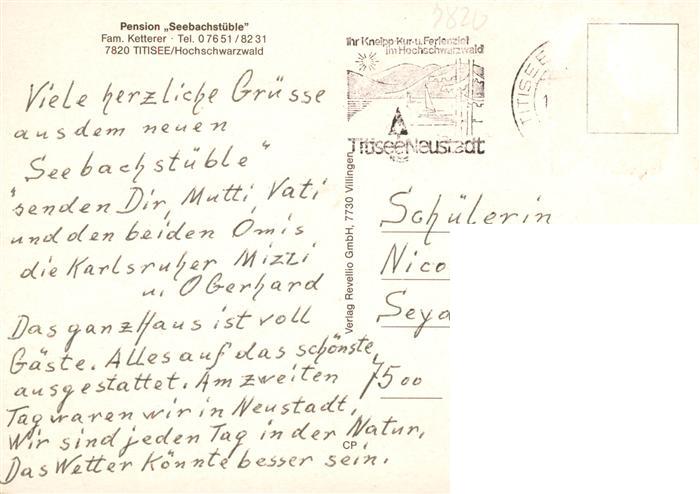 Pension „Seebachstüble"
Fam. Ketterer · Tel. 0 76 51 / 82 31
7820 TITISEE/Hochschwarzwald
Viele herzliche Grüsse
aus dem neuen
"Seebachstüble"
senden Dir, Mutti, Vati
und den beiden Omis
die Karlsruher Mizzi
u. OGerhard
Das ganz Haus ist voll
Gäste. Alles auf das schönste
ausgestattet. Am zweiten
Tag waren wir in Neustadt,
Wir sind jeden Tag in der Natur.
Das Wetter könnte besser sein.
Verlag Revellio GmbH, 7730 Villingen
CP
7820
Ihr Kneipp-Kur-u. Ferienziel
im Hochschwarzwald
Titisee Neustadt
TITISEE
1
Schülerin
Nico
Seya
7500